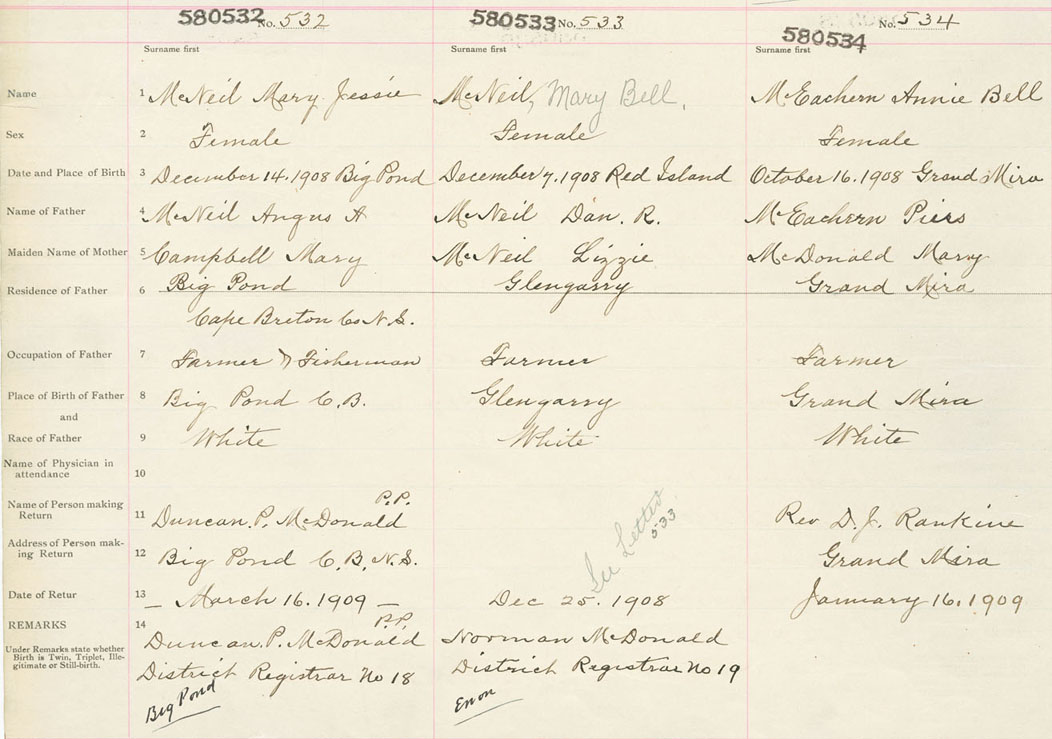 580532 No. 532 580533 No. 533 580534 No. 534
Surname first Surname first Surname first
Name 1 McNeil Mary Jessie McNeil, Mary Bell, McEachern Annie Bell
Sex 2 Female Female Female
Date and Place of Birth 3 December 14. 1908 Big Pond December 7. 1908 Red Island October 16. 1908 Grand Mira
Name of Father 4 McNeil Angus A McNeil Dan. R. McEachern Piers
Maiden Name of Mother 5 Campbell Mary McNeil Lizzie McDonald Mary
Residence of Father 6 Big Pond Glengarry Grand Mira
Cape Breton Co N.S.
Occupation of Father 7 Farmer & Fisherman Farmer Farmer
Place of Birth of Father 8 Big Pond C.B. Glengarry Grand Mira
and
Race of Father 9 White White White
Name of Physician in
attendance 10
Name of Person making P.P.
Return 11 Duncan. P. McDonald Rev D. J. Rankine
Address of Person mak-
ing Return 12 Big Pond C. B. N.S. Grand Mira
See Letter
533
Date of Retur 13 – March 16. 1909 – Dec 25. 1908 January 16. 1909
REMARKS 14 P.P.
Duncan. P. McDonald Norman McDonald
Under Remarks state whether
Birth is Twin, Triplet, Ille-
gitimate or Still-birth.
District Registrar No 18 District Registrar No 19
Big Pond Enon